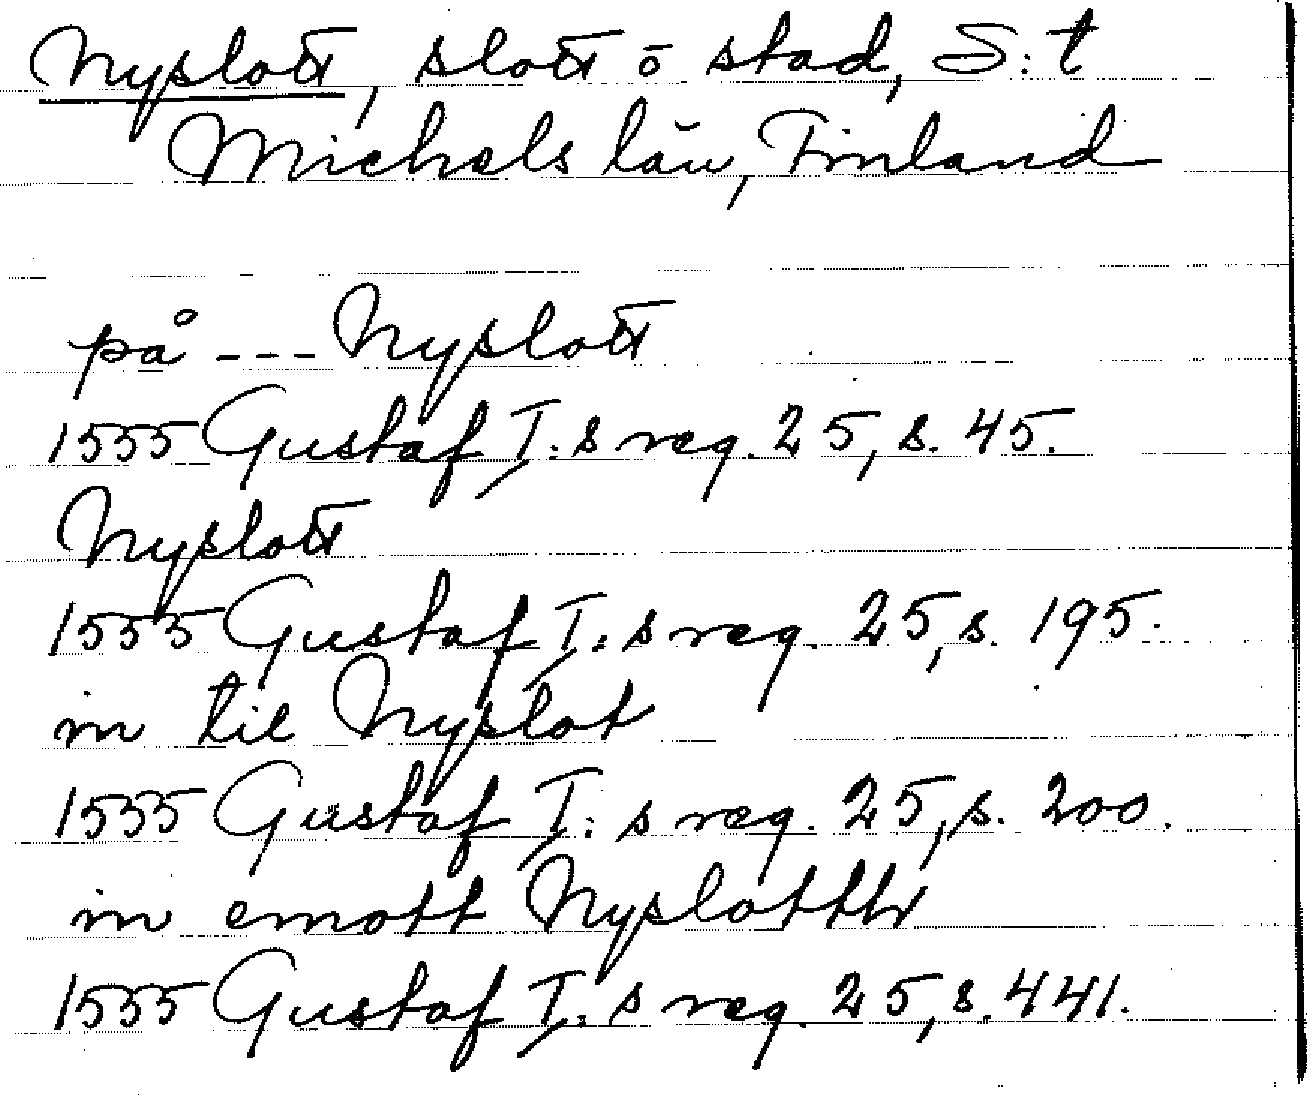 Nyslott, slott o stad, S:t
Michels län, Finland
på --- Nyslott
1555 Gustaf I:s reg. 25, s. 45.
Nyslott
1555 Gustaf I:s reg. 25, s. 195.
in til Nyslot
1555 Gustaf I:s reg. 25, s. 200.
in emott Nyslottth
1555 Gustaf I:s reg. 25, s. 441.